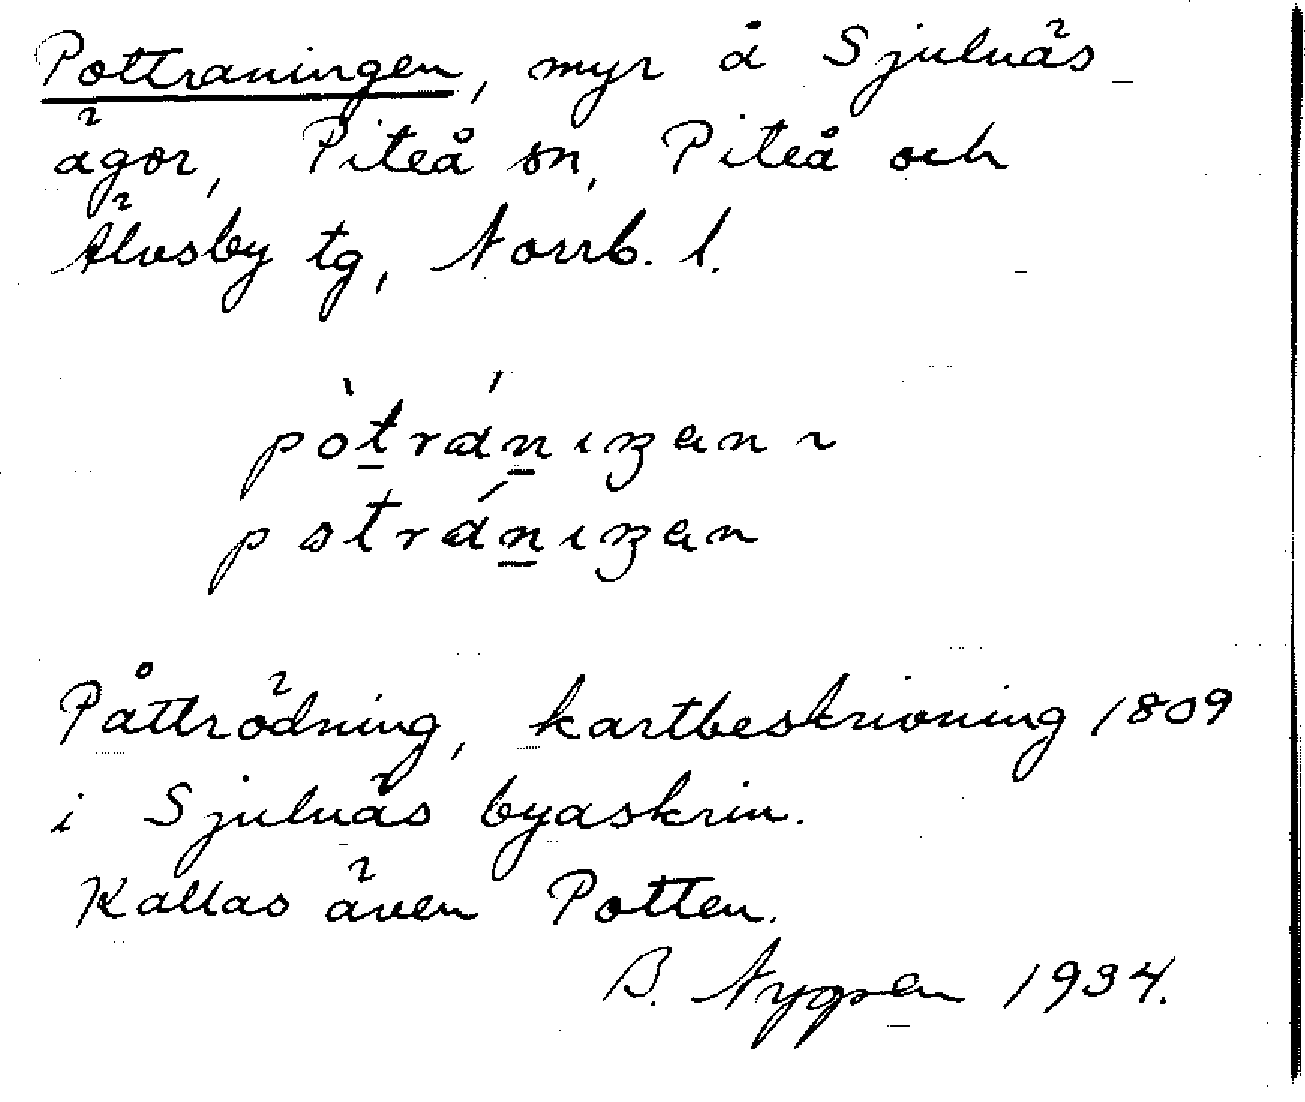 Pottraningen, myr å Sjulnäs
ägor, Piteå sn, Piteå och
Älvsby tg, Norrb. l.
pòtránıŋan ~
potránıŋan
Påttrödning, kartbeskrivning 1809
i Sjulnäs byaskrin.
Kallas även Potten.
B. Nygren 1934.